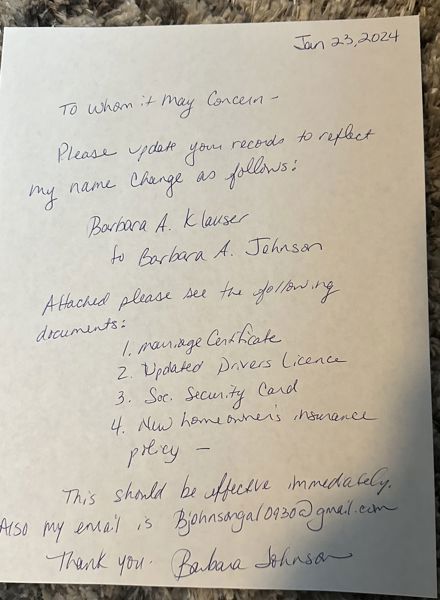 Jan 23, 2024
To whom it may Concern -
Please update your records to reflect
my name change as follows:
Barbara A. Klauser
to Barbara A. Johnson
Attached please see the following
documents:
1. marriage Certificate
2. Updated Drivers Licence
3. Soc. Security Card
4. New homeowner's insurance
policy -
This should be effective immediately.
Also my email is Bjohnsongal0930@gmail.com
Thank you. Barbara Johnson